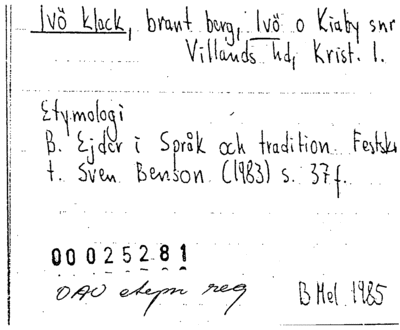 Ivö klack, brant berg, Ivö o Kiaby snr
Villands hd, Krist. l.
Etymologi
B. Ejder i Språk och tradition. Festskr
t. Sven Benson (1983) s. 37f.
00025281
OAU etym reg
B Hel 1985